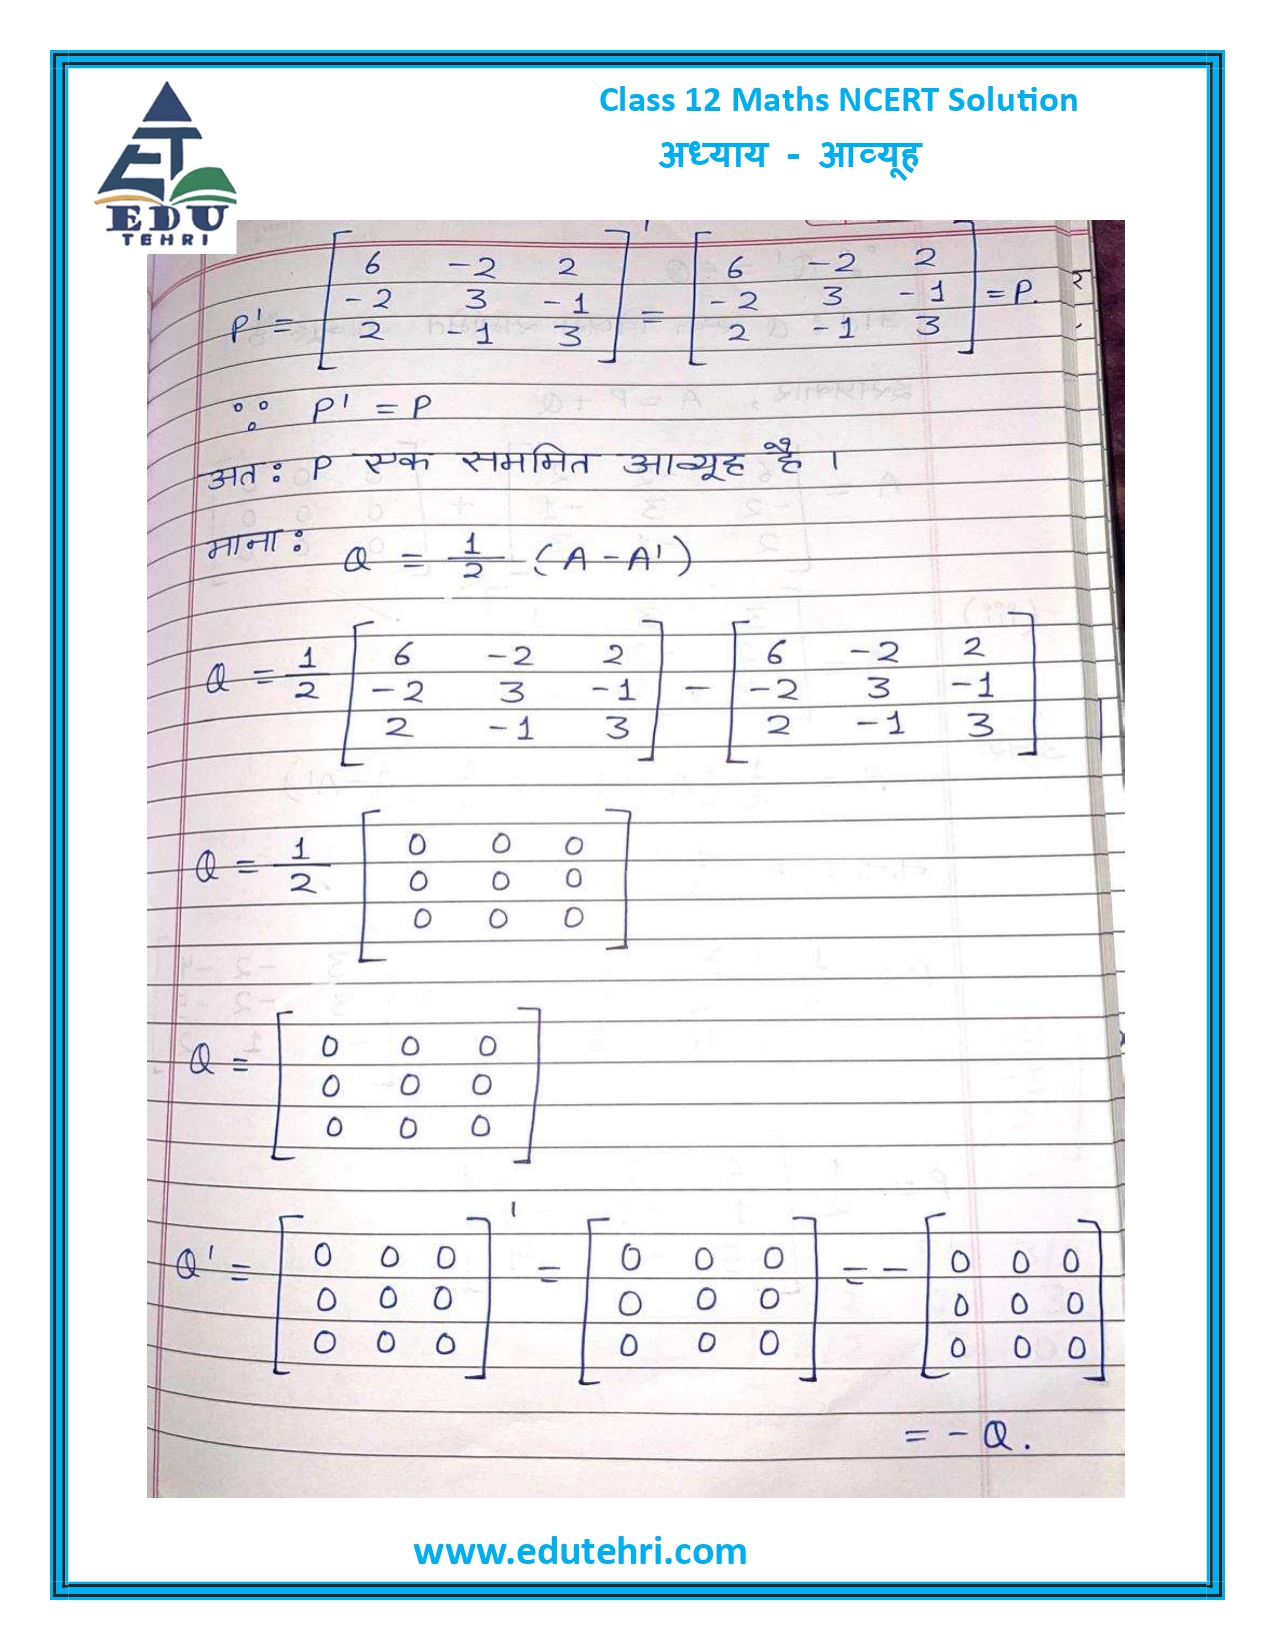 Class 12 Maths NCERT Solution
अध्याय - आव्यूह
EDU
TEHRI
P' = [ 6 -2 2 ]' = [ 6 -2 2 ] = P.
-2 3 -1 -2 3 -1
2 -1 3 2 -1 3
∵ P' = P
अतः P एक सममित आव्यूह है ।
माना: Q = 1/2 (A - A')
Q = 1/2 [ 6 -2 2 ] - [ 6 -2 2 ]
-2 3 -1 -2 3 -1
2 -1 3 2 -1 3
Q = 1/2 [ 0 0 0 ]
0 0 0
0 0 0
Q = [ 0 0 0 ]
0 0 0
0 0 0
Q' = [ 0 0 0 ]' = [ 0 0 0 ] = - [ 0 0 0 ]
0 0 0 0 0 0 0 0 0
0 0 0 0 0 0 0 0 0
= - Q.
www.edutehri.com